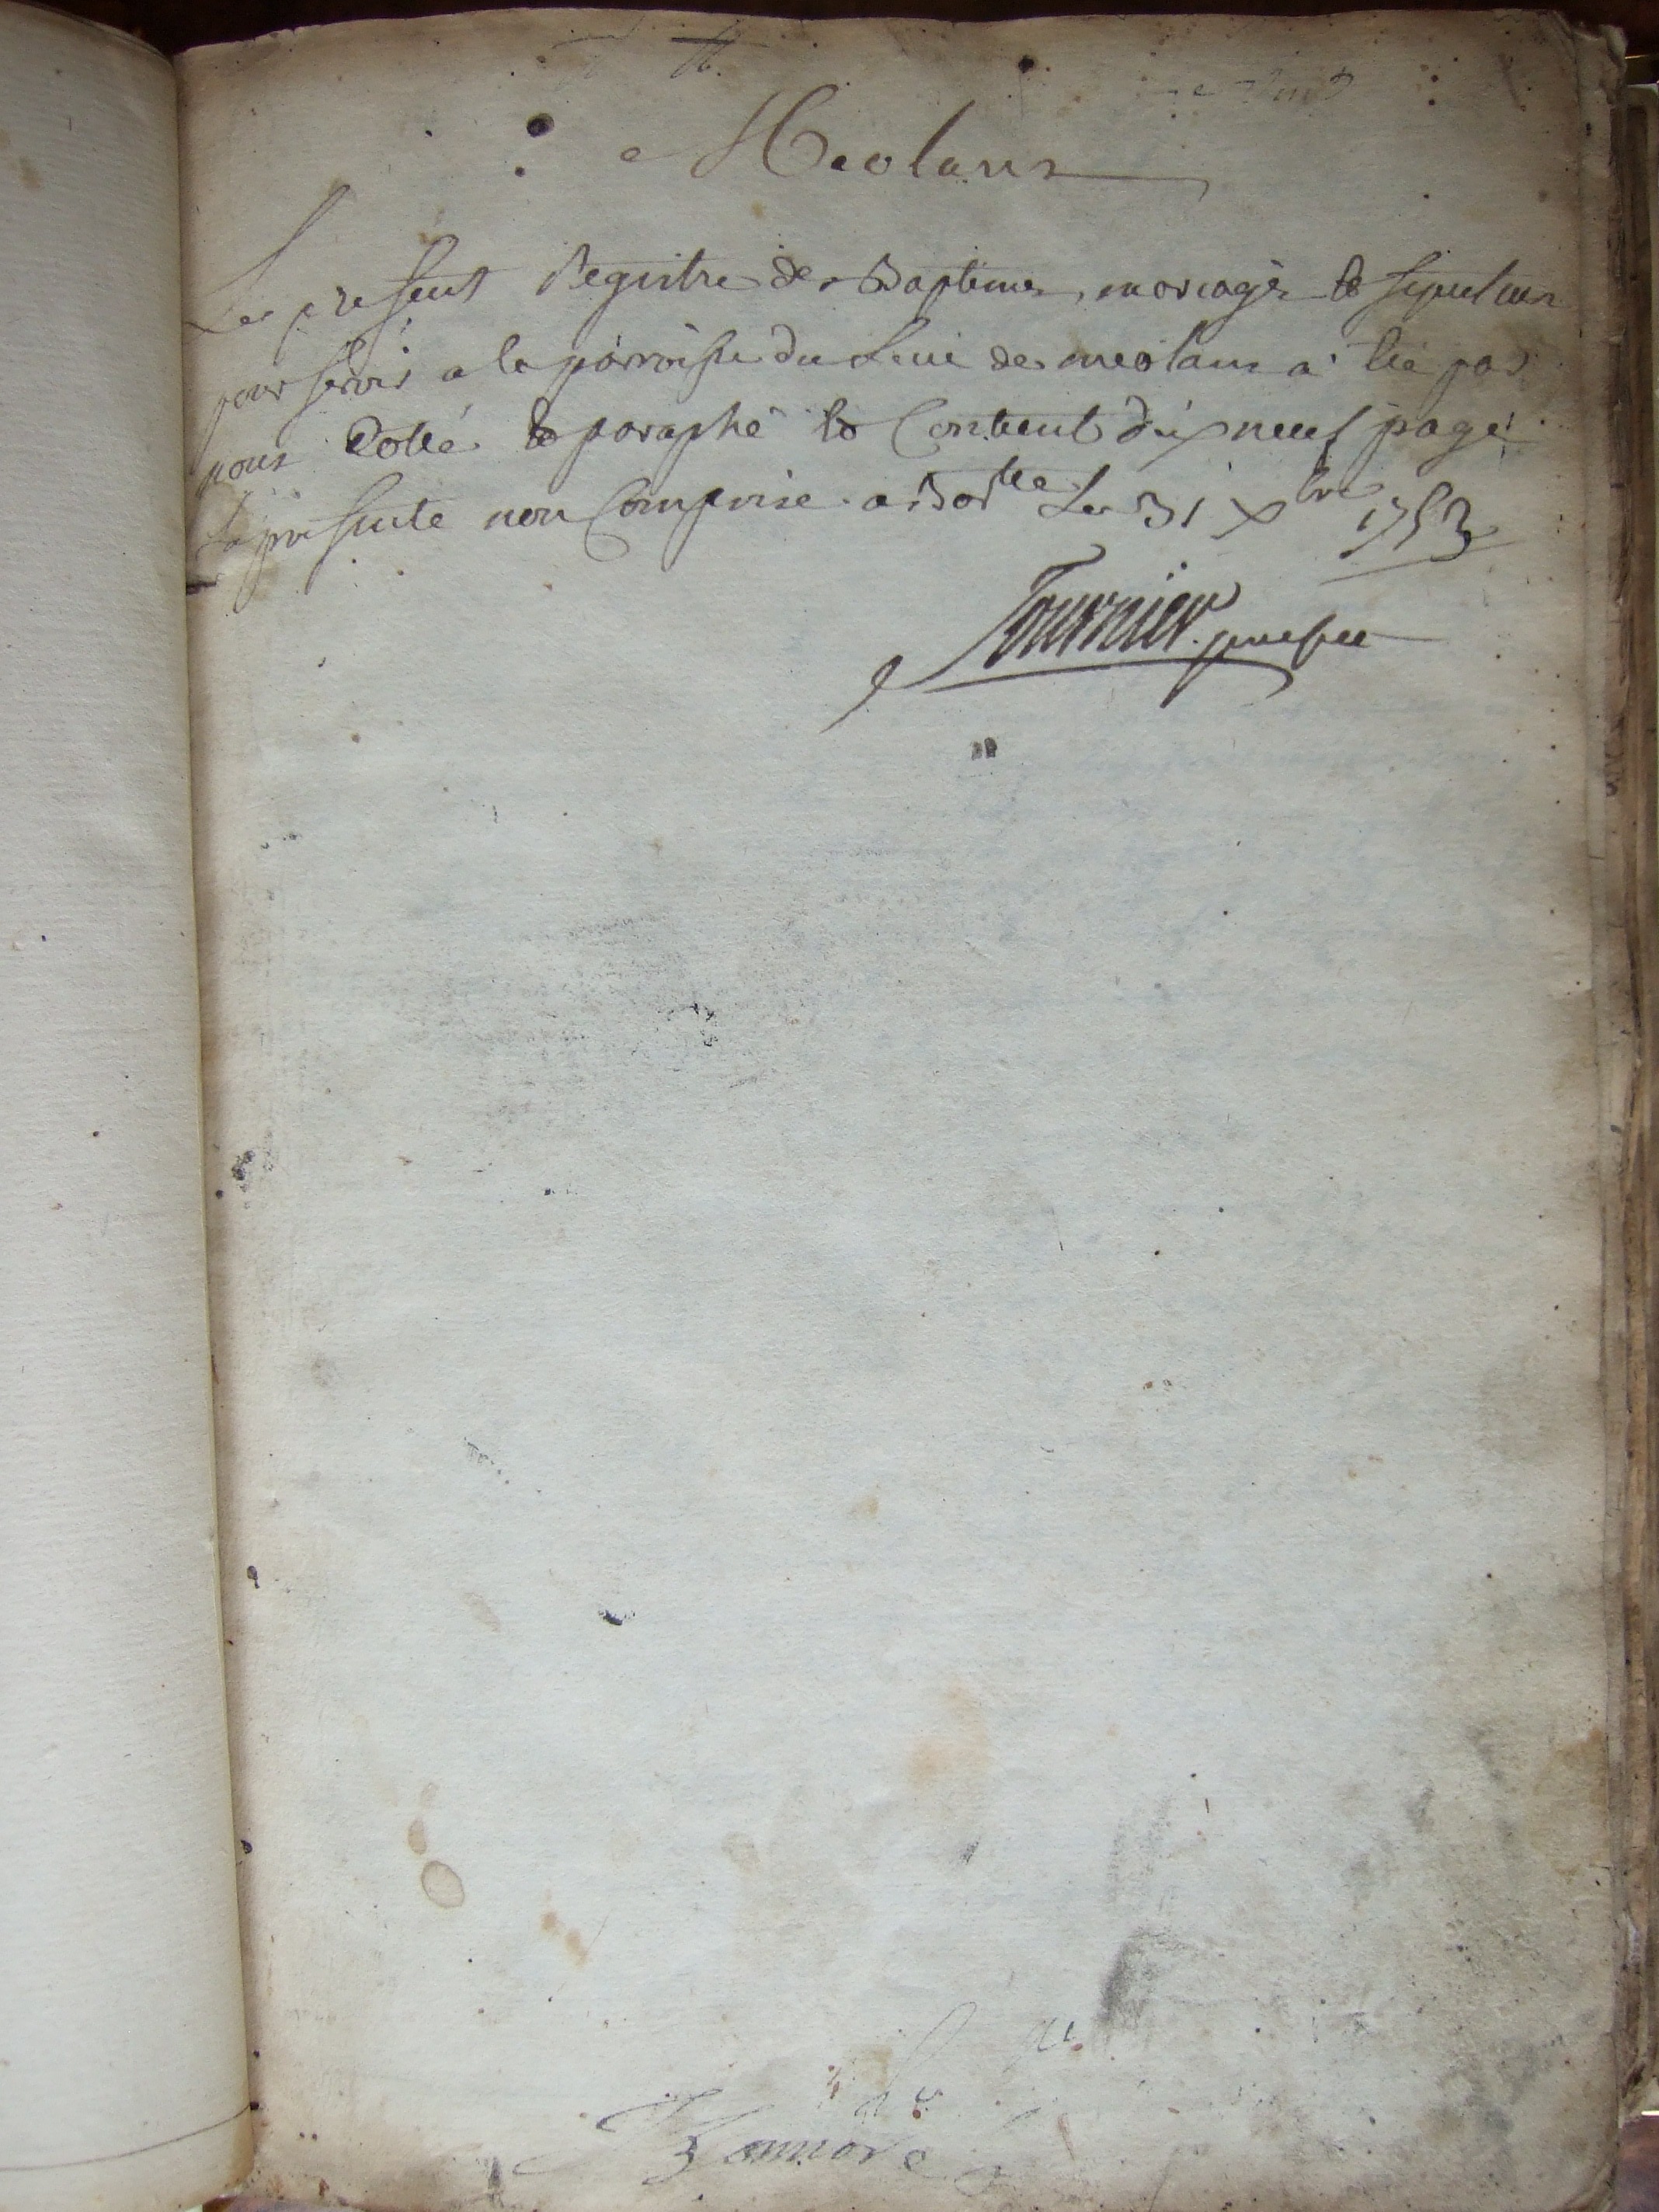 Meolans
Le present Registre de Baptemes, mariages et sepultures
pour servir a la parroisse du de meolans a été par
nous Cotté et paraphé et Contient dix neuf pages
La presente non Comprise a Bar^lte Le 31 x^bre 1753
Tournier